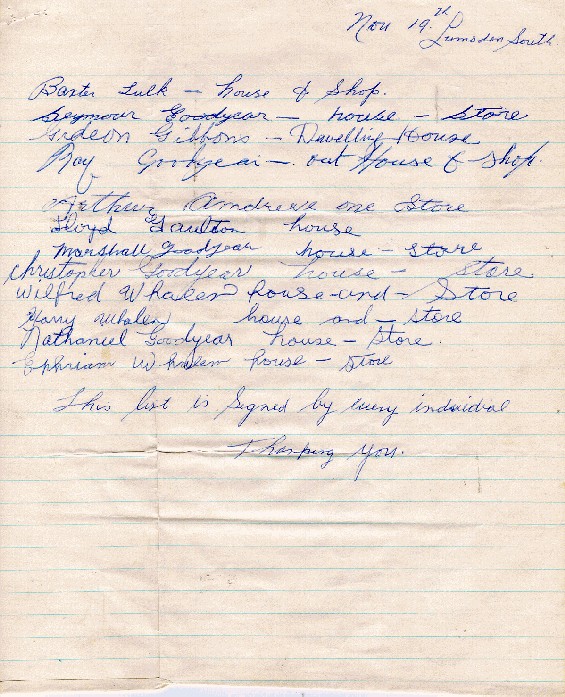 Nov 19.th
Lumsden South
Baxter Tulk - house & Shop.
Seymour Goodyear - house - Store
Gideon Gibbons - Dwelling House
Ray Goodyear - out House & Shop.
Arthur Andrews one Store
Lloyd Gaulton house
Marshall Goodyear house - store
Christopher Goodyear house - store
Wilfred Whalen house - and - Store
Harry Whalen house and - store
Nathaniel Goodyear house - Store.
Ephriam Whalen house - Store
This list is Signed by every individial
Thanking you.